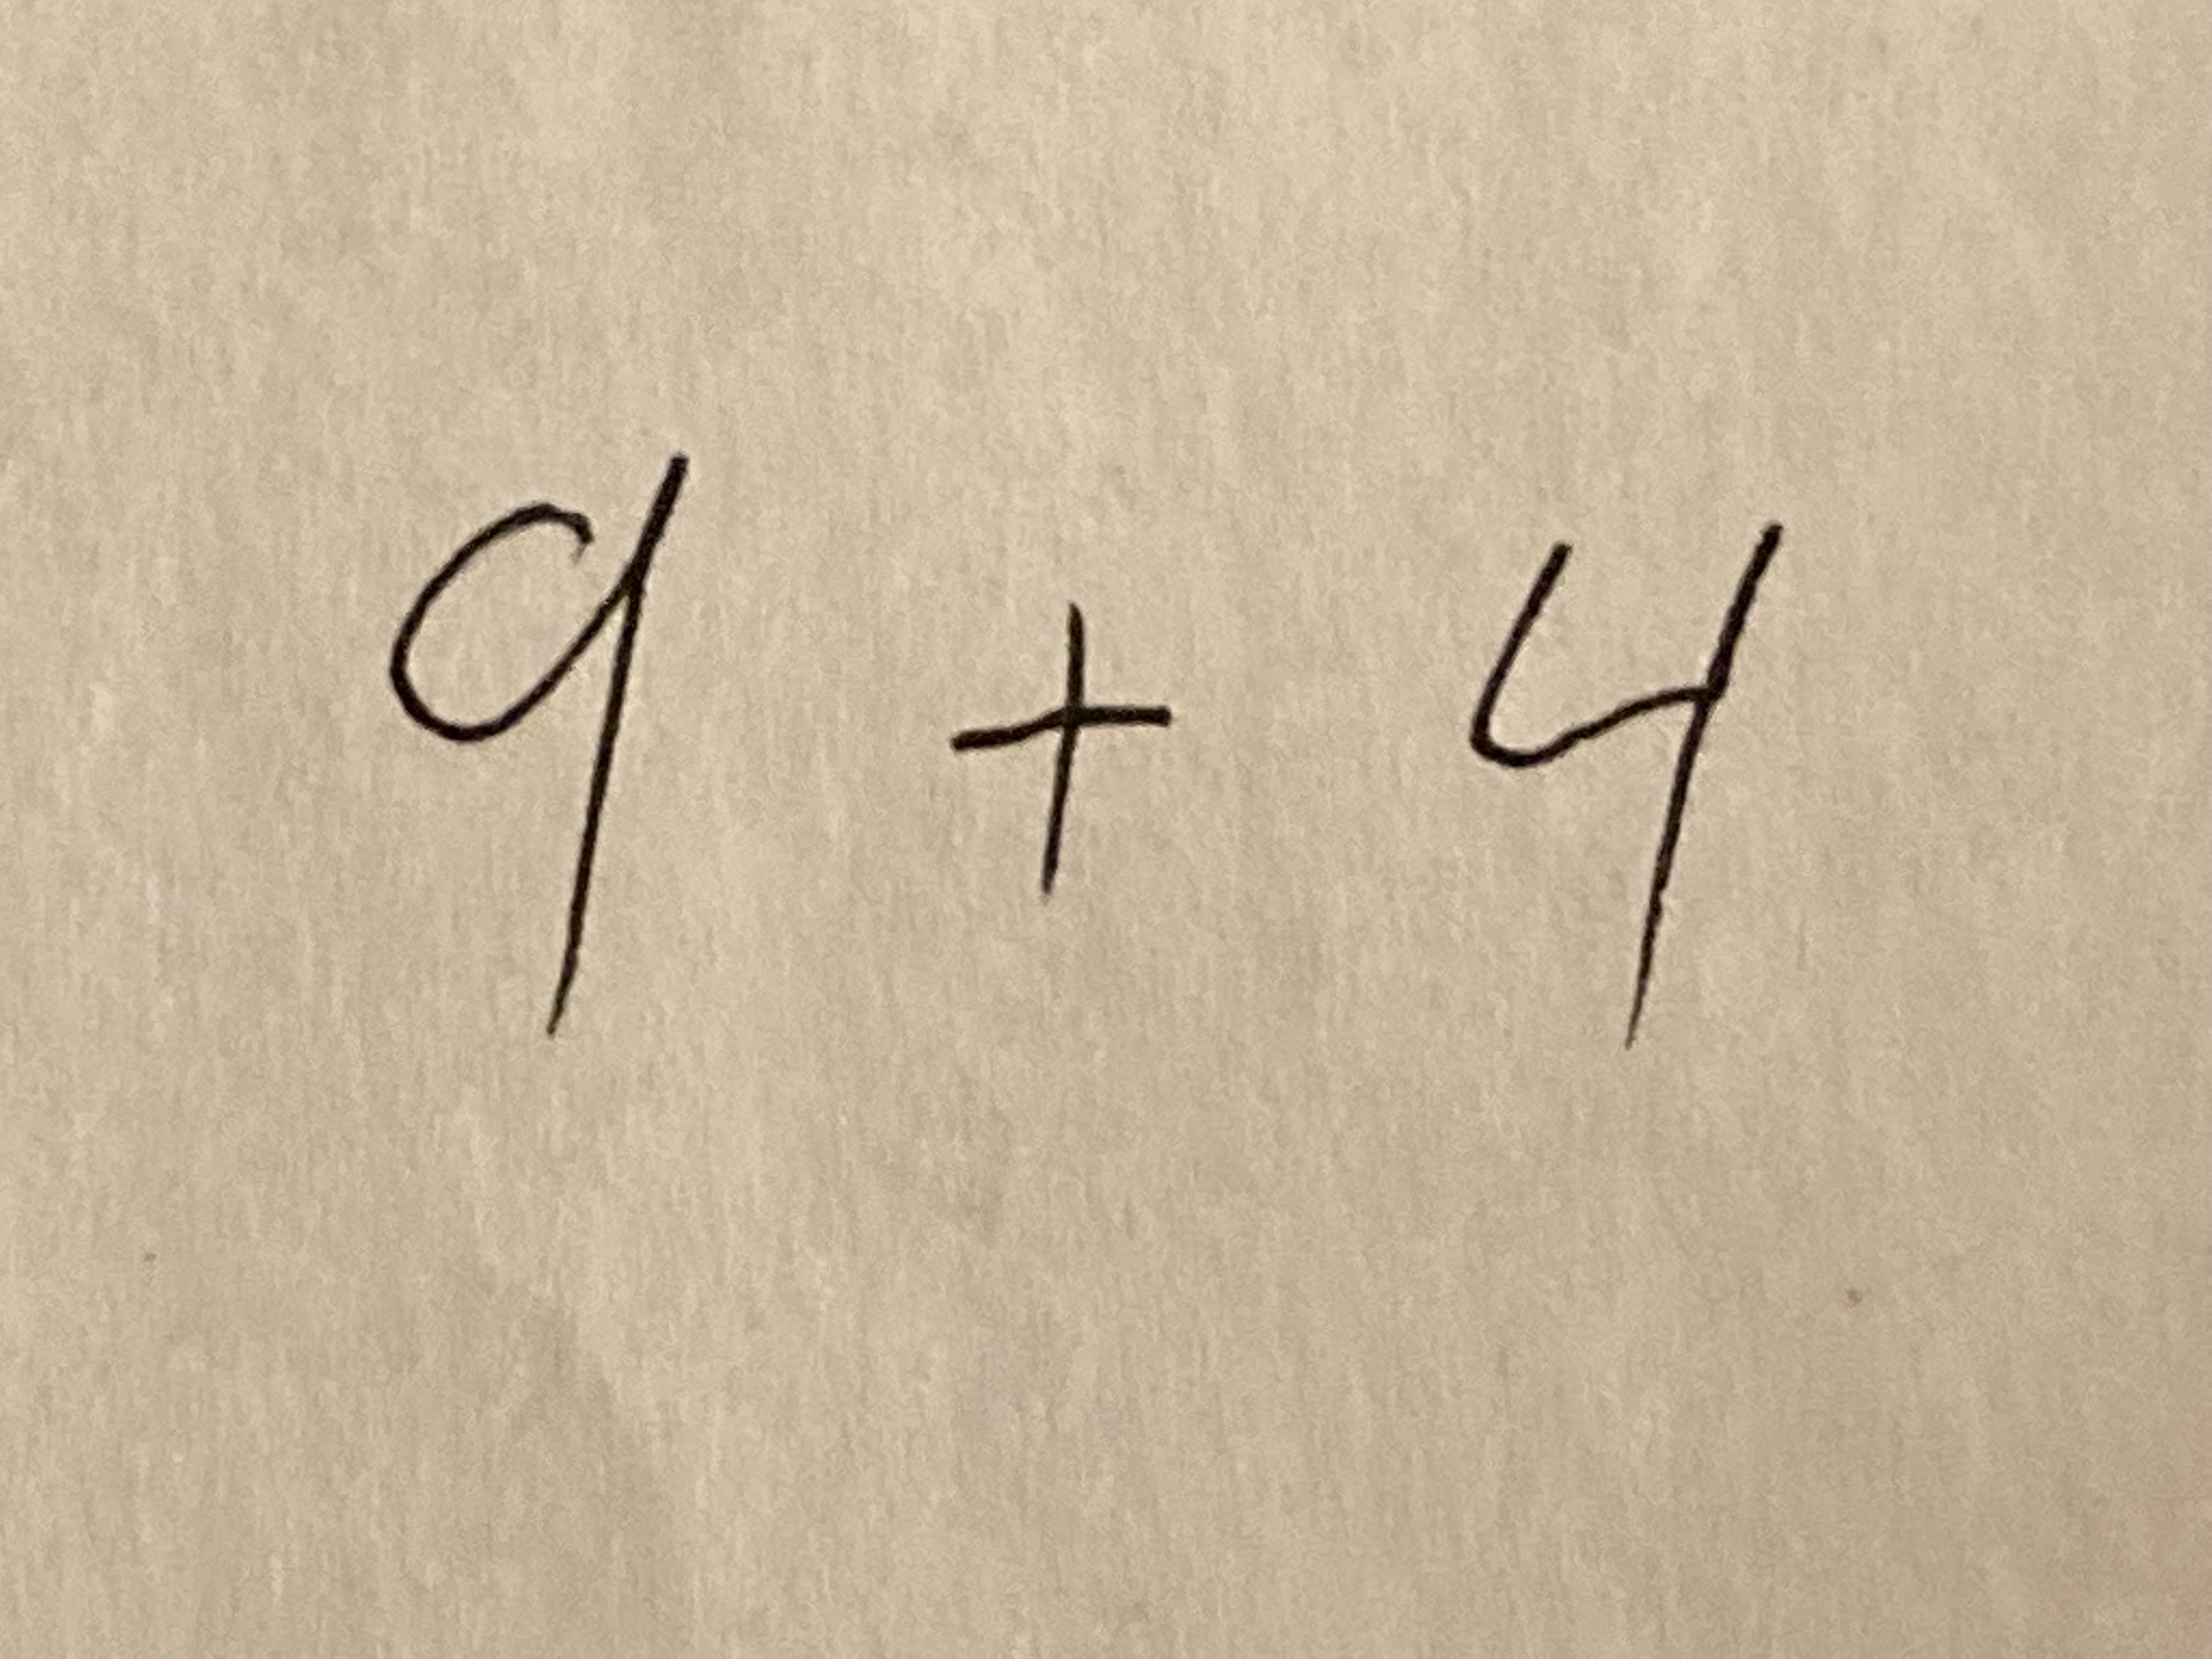 9 + 4